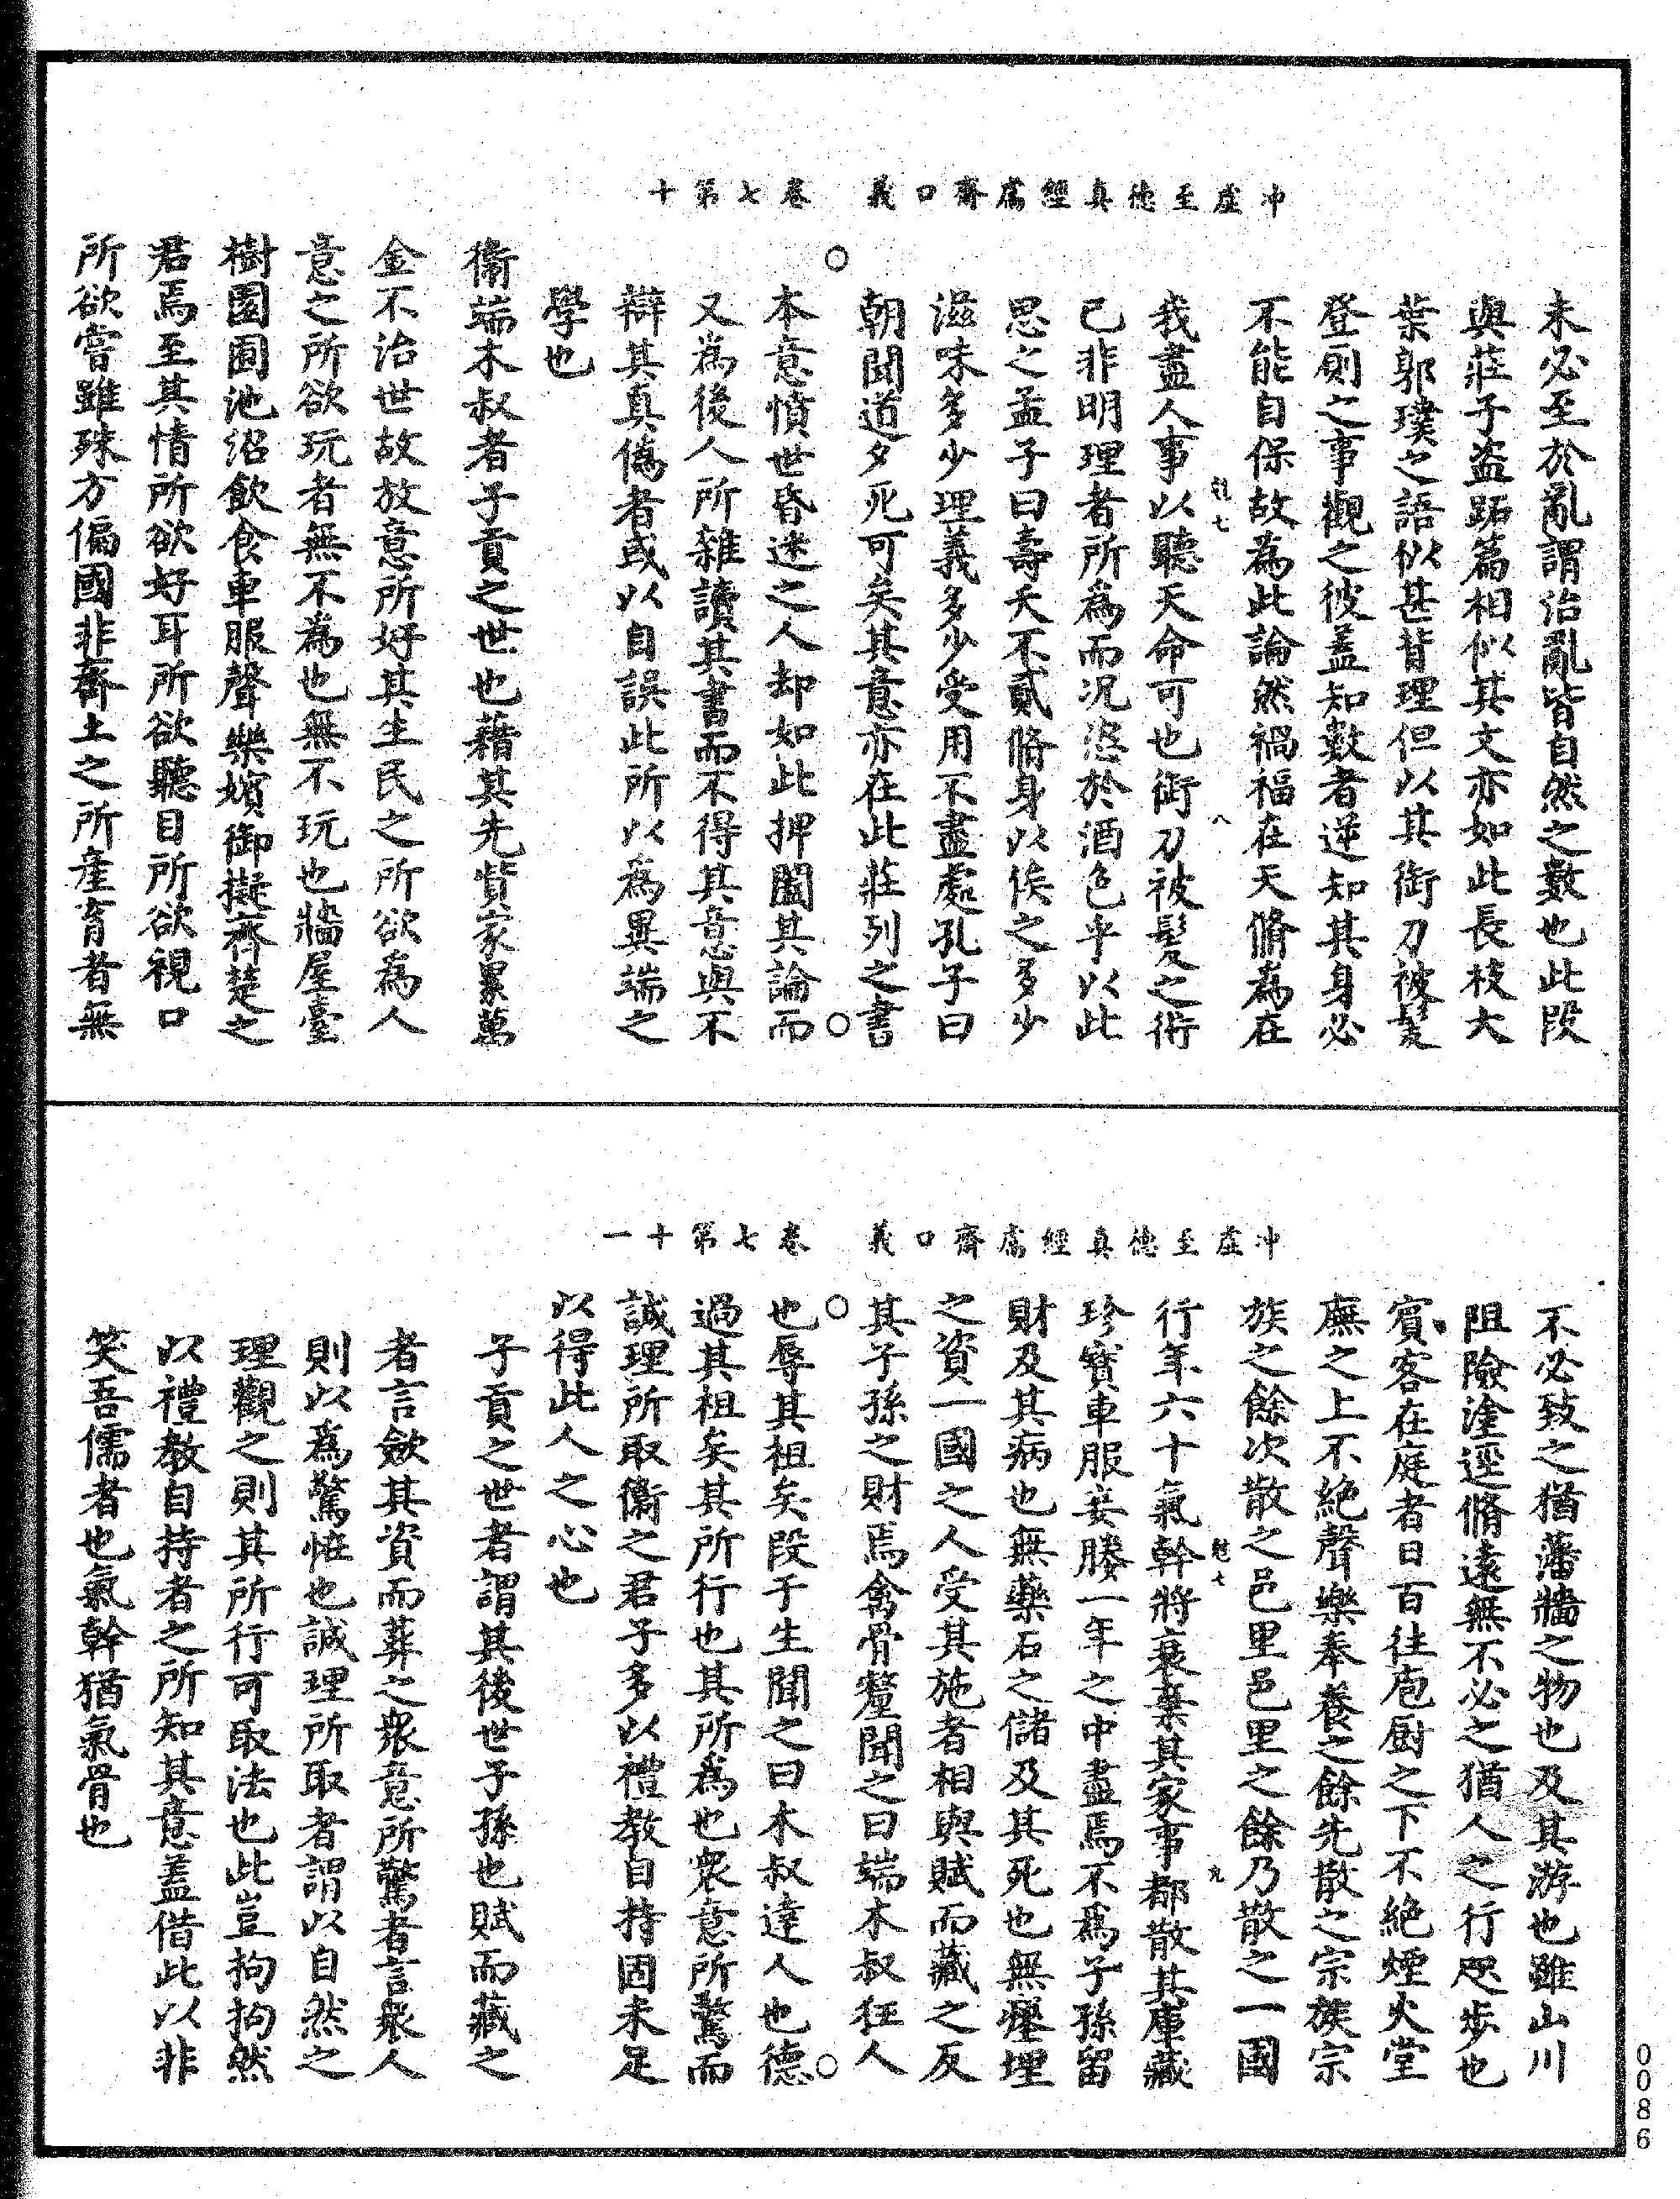 冲虛至德真經鬳齋口義　卷七第十
未必至於亂謂治亂皆自然之數也此段
與莊子盗跖篇相似其文亦如此長枝大
葉郭璞之語似甚背理但以其銜刀被髮
登厠之事觀之彼盖知數者逆知其身必
不能自保故為此論然禍福在天脩為在
我盡人事以聽天命可也銜刀被髮之術
已非明理者所為而况恣於酒色乎以此
思之孟子曰壽夭不貳脩身以俟之多少
滋味多少理義多少受用不盡處孔子曰
朝聞道夕死可矣其意亦在此莊列之書
本意憤世昏迷之人却如此押闔其論而
又為後人所雜讀其書而不得其意與不
辯其真僞者或以自誤此所以為異端之
學也
衞端木叔者子貢之世也藉其先貲家累萬
金不治世故放意所好其生民之所欲為人
意之所欲玩者無不為也無不玩也牆屋臺
樹園囿池沼飲食車服聲樂嬪御擬齊楚之
君焉至其情所欲好耳所欲聽目所欲視口
所欲嘗雖殊方偏國非齊土之所産育者無
冲虛至德真經鬳齋口義　卷七第十一
不必致之猶藩牆之物也及其游也雖山川
阻險塗逕脩遠無不必之猶人之行咫步也
賓客在庭者日百往庖厨之下不絶煙火堂
廡之上不絶聲樂奉養之餘先散之宗族宗
族之餘次散之邑里邑里之餘乃散之一國
行年六十氣幹將衰棄其家事都散其庫藏
珍寳車服妾媵一年之中盡焉不為子孫留
財及其病也無藥石之儲及其死也無瘞埋
之資一國之人受其施者相與賦而藏之反
其子孫之財焉禽骨釐聞之曰端木叔狂人
也辱其祖矣段干生聞之曰木叔達人也德
過其祖矣其所行也其所為也衆意所驚而
誠理所取衞之君子多以禮教自持固未足
以得此人之心也
子貢之世者謂其後世子孫也賦而藏之
者言斂其資而葬之衆意所驚者言衆人
則以為驚怪也誠理所取者謂以自然之
理觀之則其所行可取法也此豈拘拘然
以禮教自持者之所知其意盖借此以非
笑吾儒者也氣幹猶氣骨也
0086